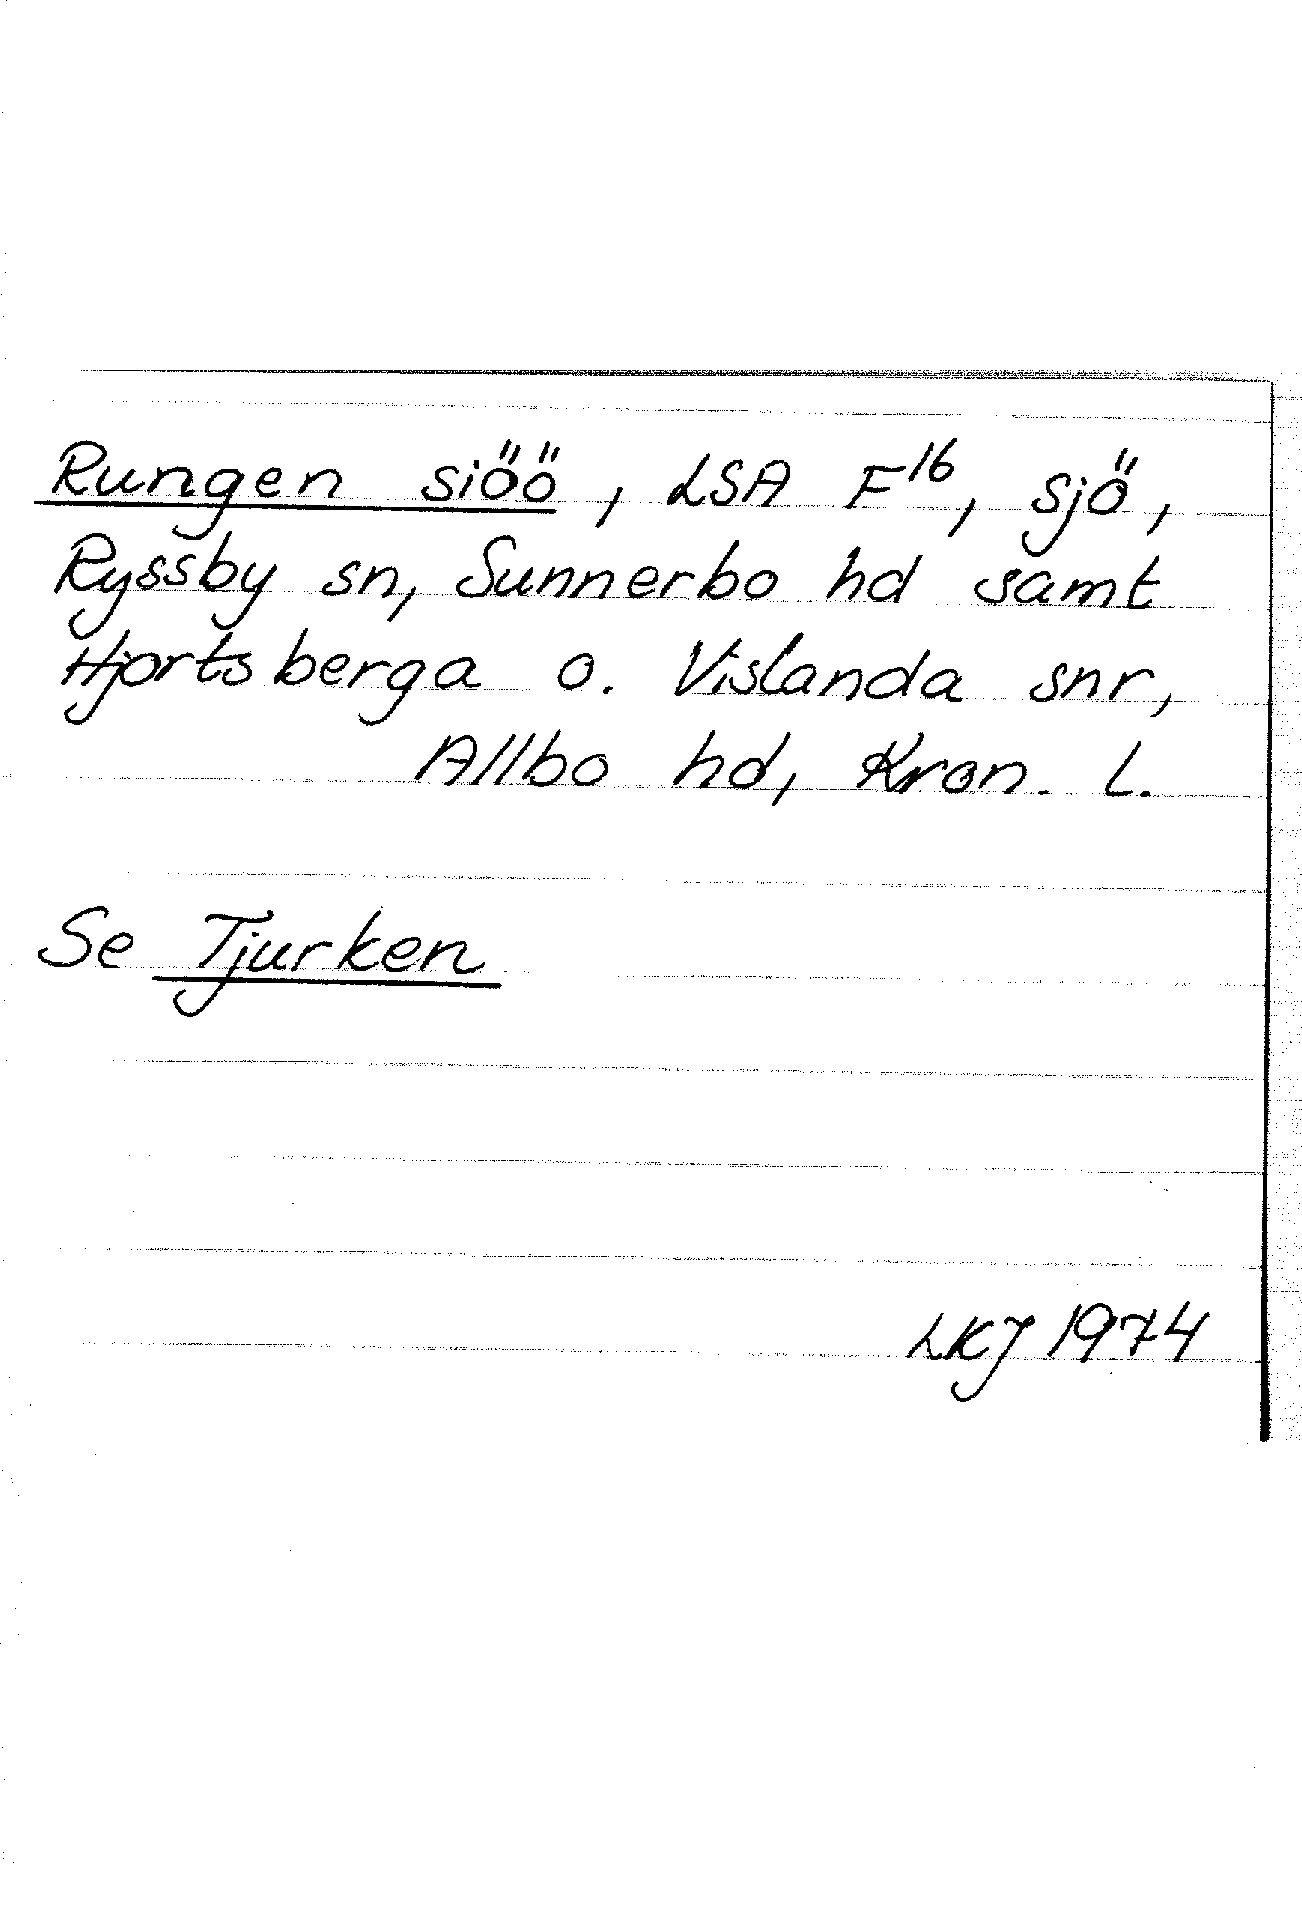 Rungen siöö, LSA F16, sjö,
Ryssby sn, Sunnerbo hd samt
Hjortsberga o. Vislanda snr,
Allbo hd, Kron. L.
Se Tjurken
LKJ 1974